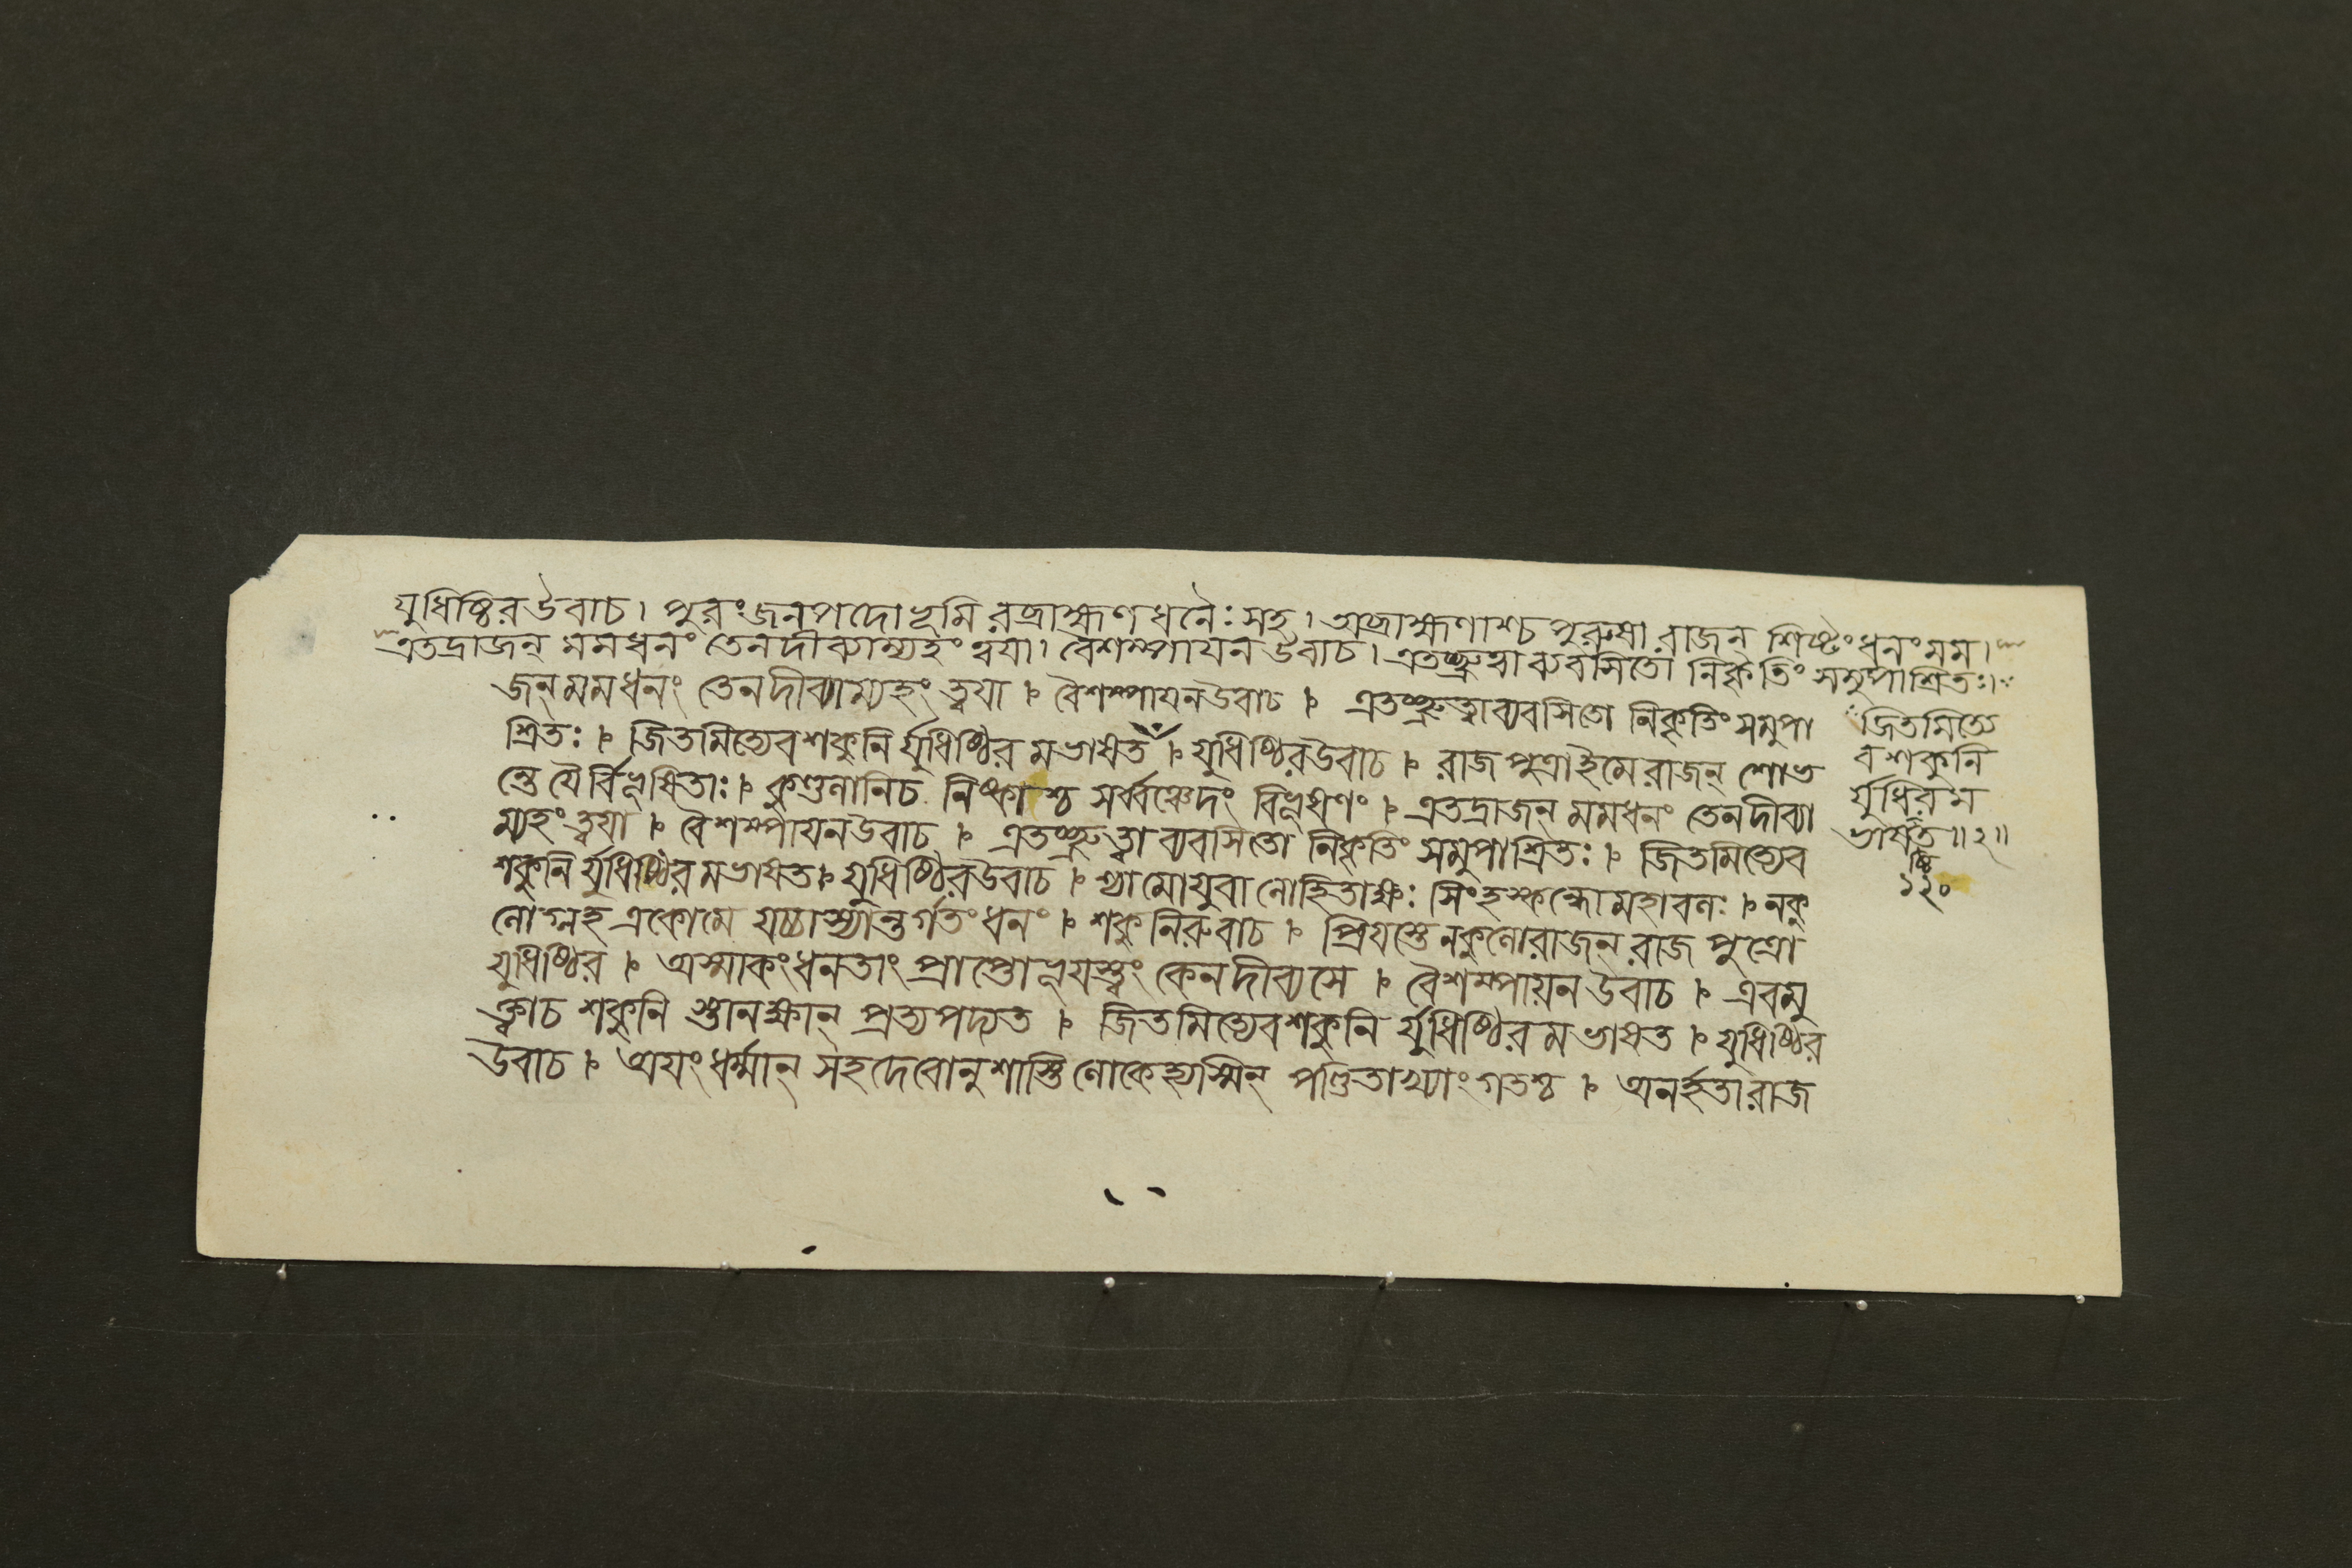 যুধিষ্ঠিরউবাচ। পুরংজনপদোভূমিরব্রাহ্মণধনৈঃসহ। অব্রাহ্মণাশ্চপুরুষারাজন্ শিষ্টংধনংমম।
এতদ্রাজন্ মমধনং তেনদীব্যাম্যহং ত্বয়া। বৈশম্পায়নউবাচ। এতচ্ছ্রুত্বাব্যবসিতো নিকৃতিং সমুপাশ্রিতঃ।
জন্মমধনং তেনদীব্যাম্যহং ত্বয়া । বৈশম্পায়নউবাচ । এতচ্ছ্রুত্বাব্যবসিতো নিকৃতিংসমুপা
শ্রিতঃ । জিতমিত্যেবশকুনি র্যুধিষ্ঠিরমভাষত । যুধিষ্ঠিরউবাচ । রাজপুত্রাইমেরাজন্ শোভ
ন্তে যৈর্বিভূষিতাঃ । কুণ্ডলানিচ নিষ্কাশ্চ সর্ব্বঞ্চেদং বিভূষণং । এতদ্রাজন্ মমধনং তেনদীব্যা
ম্যহংত্বয়া । বৈশম্পায়নউবাচ । এতচ্ছ্রুত্বা ব্যবসিতো নিকৃতিং সমুপাশ্রিতঃ । জিতমিত্যেব
শকুনি র্যুধিষ্ঠিরমভাষত । যুধিষ্ঠিরউবাচ । শ্যামোযুবালোহিতাক্ষঃ সিংহস্কন্ধোমহাবলঃ । নকু
লোগ্লহ একোমে যচ্চাস্যান্তর্গতং ধনং । শকুনিরুবাচ । প্রিয়স্তেনকুলোরাজন্ রাজপুত্রো
যুধিষ্ঠির । অস্মাকংধনতাং প্রাপ্তোভূয়স্ত্বং কেনদীব্যসে । বৈশম্পায়নউবাচ । এবমু
ক্ত্বাচ শকুনি স্তানক্ষান্ প্রত্যপদ্যত । জিতমিত্যেবশকুনি র্যুধিষ্ঠিরমভাষত । যুধিষ্ঠির
উবাচ । অয়ংধর্ম্মান্ সহদেবোনুশাস্তি লোকেহ্যস্মিন্ পণ্ডিতাখ্যাংগতশ্চ । অনর্হতারাজ
জিতমিত্যে
বশকুনি
র্যুধিরম
ভাষত॥২॥
ষ্ঠি
১২০